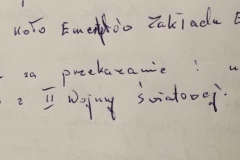 Koło Emerytów Zakładu E
za przekazanie i u
z II Wojny Światowej.